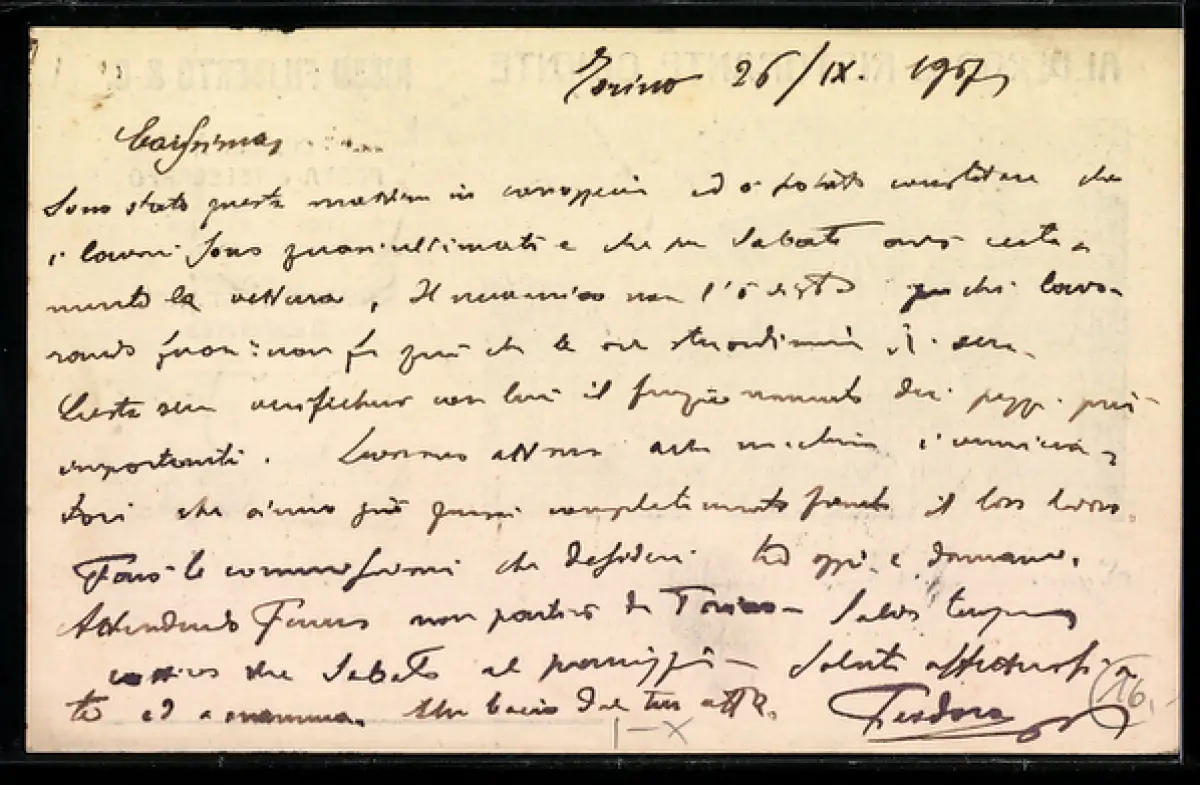 Torino 26/IX. 1907
Carissima,
Sono stato questa mattina in carrozzeria ed ò potuto constatare che
i lavori sono quasi ultimati e che per Sabato avrò certa-
mente la vettura, Il meccanico non l'ò visto perchè lavo-
rando fuori non fa più che le ore straordinarie di sera.
Questa sera verificherò con lui il funzionamento dei pezzi più
importanti. Lavorano attorno alla macchina i vernicia-
tori che ànno già quasi completamente finito il loro lavoro.
Farò le commissioni che desideri tra oggi e domani.
Attendendo non partirò da Torino Salvo tempo
cattivo che Sabato al pomeriggio - Saluti affettuosi a
te ed a mamma. Un bacio dal tuo aff.
Teodoro
16.-
1-X